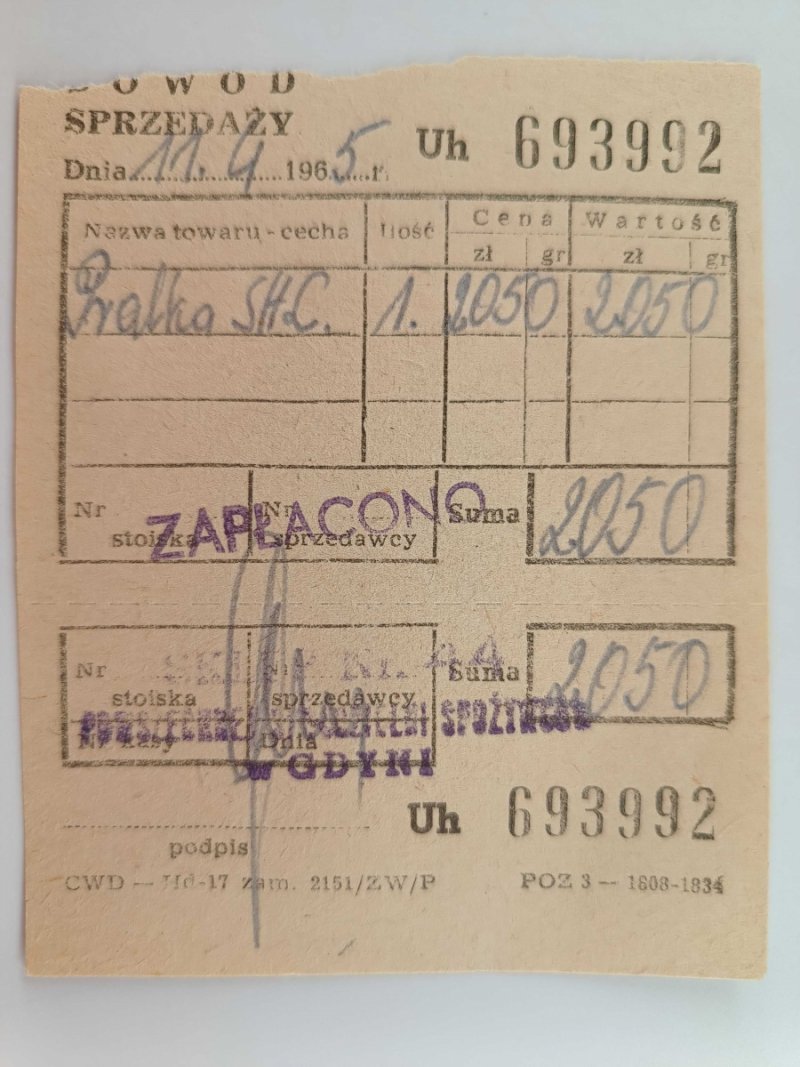 DOWÓD
SPRZEDAŻY
Dnia 11. 4 1965 r.
Uh 693992
Nazwa towaru - cecha Ilość Cena Wartość
zł gr zł gr
Pralka SHL. 1. 2050 2050
ZAPŁACONO
Nr stoiska Nr sprzedawcy Suma 2050
Nr stoiska Nr sprzedawcy Suma 2050
SKLEP Nr. 44
POWSZECHNEJ SPÓŁDZIELNI SPOŻYWCÓW
w GDYNI
Nr kasy Dnia
Uh 693992
podpis
CWD — Hd-17 zam. 2151/ZW/P POZ 3 — 1808-1834